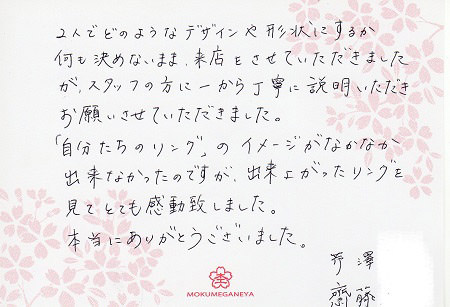 2人でどのようなデザインや形状にするか
何も決めないまま、来店をさせていただきました
が、スタッフの方に一から丁寧に説明いただき
お願いさせていただきました。
「自分たちのリング」のイメージがなかなか
出来なかったのですが、出来上がったリングを
見てとても感動致しました。
本当にありがとうございました。
芹澤
齋藤
MOKUMEGANEYA